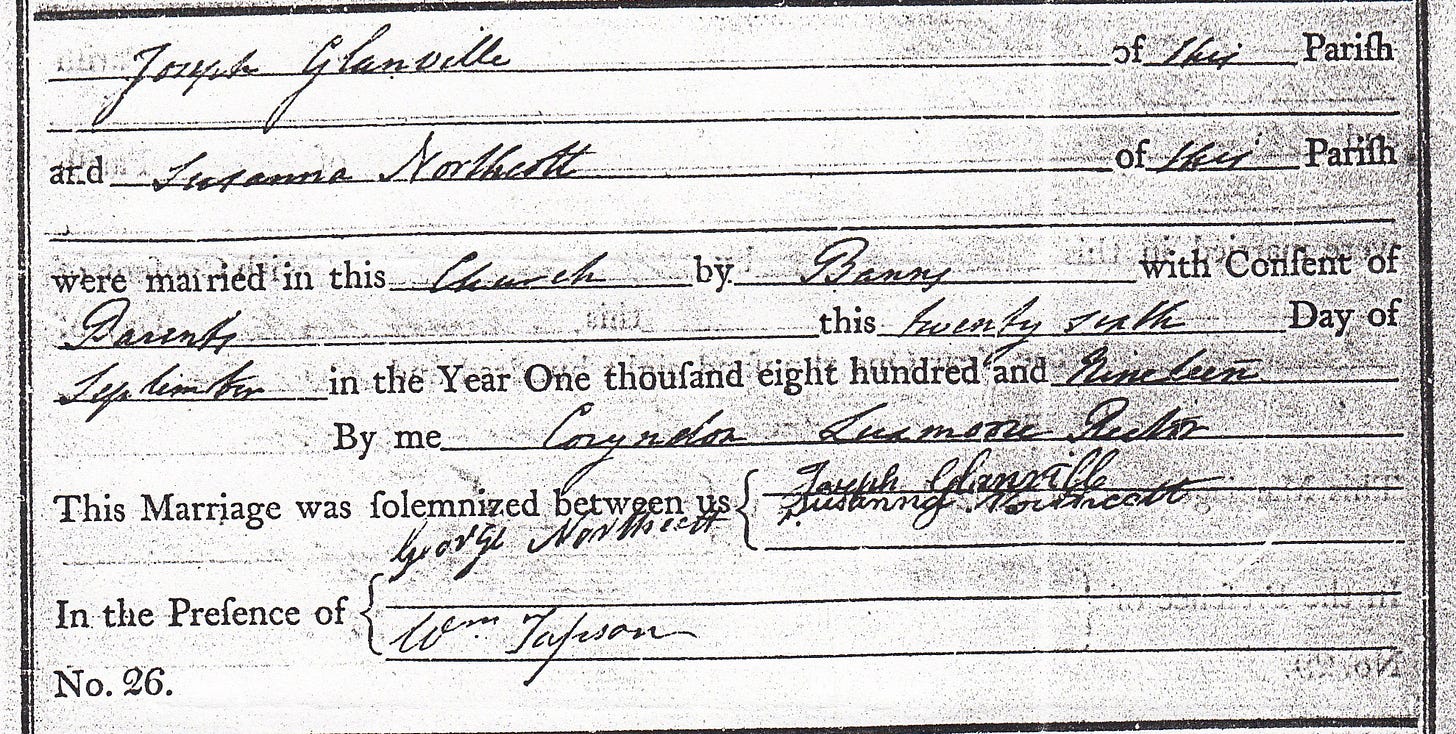 Joseph Glanville of this Pariſh
and Susanna Northcott of this Pariſh
were married in this Church by Banns with Conſent of
Parents this twenty sixth Day of
September in the Year One thouſand eight hundred and Nineteen
By me Coryndon Luxmoore Rector
This Marriage was ſolemnized between us { Joseph Glanvill
Susanna Northcott
George Northcott
In the Preſence of {
Wm Tapson
No. 26.